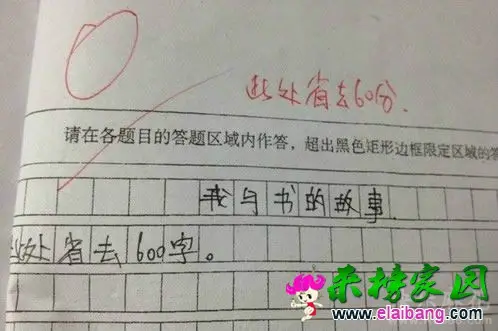 此处省去60分.
请在各题目的答题区域内作答，超出黑色矩形边框限定区域的答
我与书的故事
此处省去600字。
来榜家园
www.elaibang.com